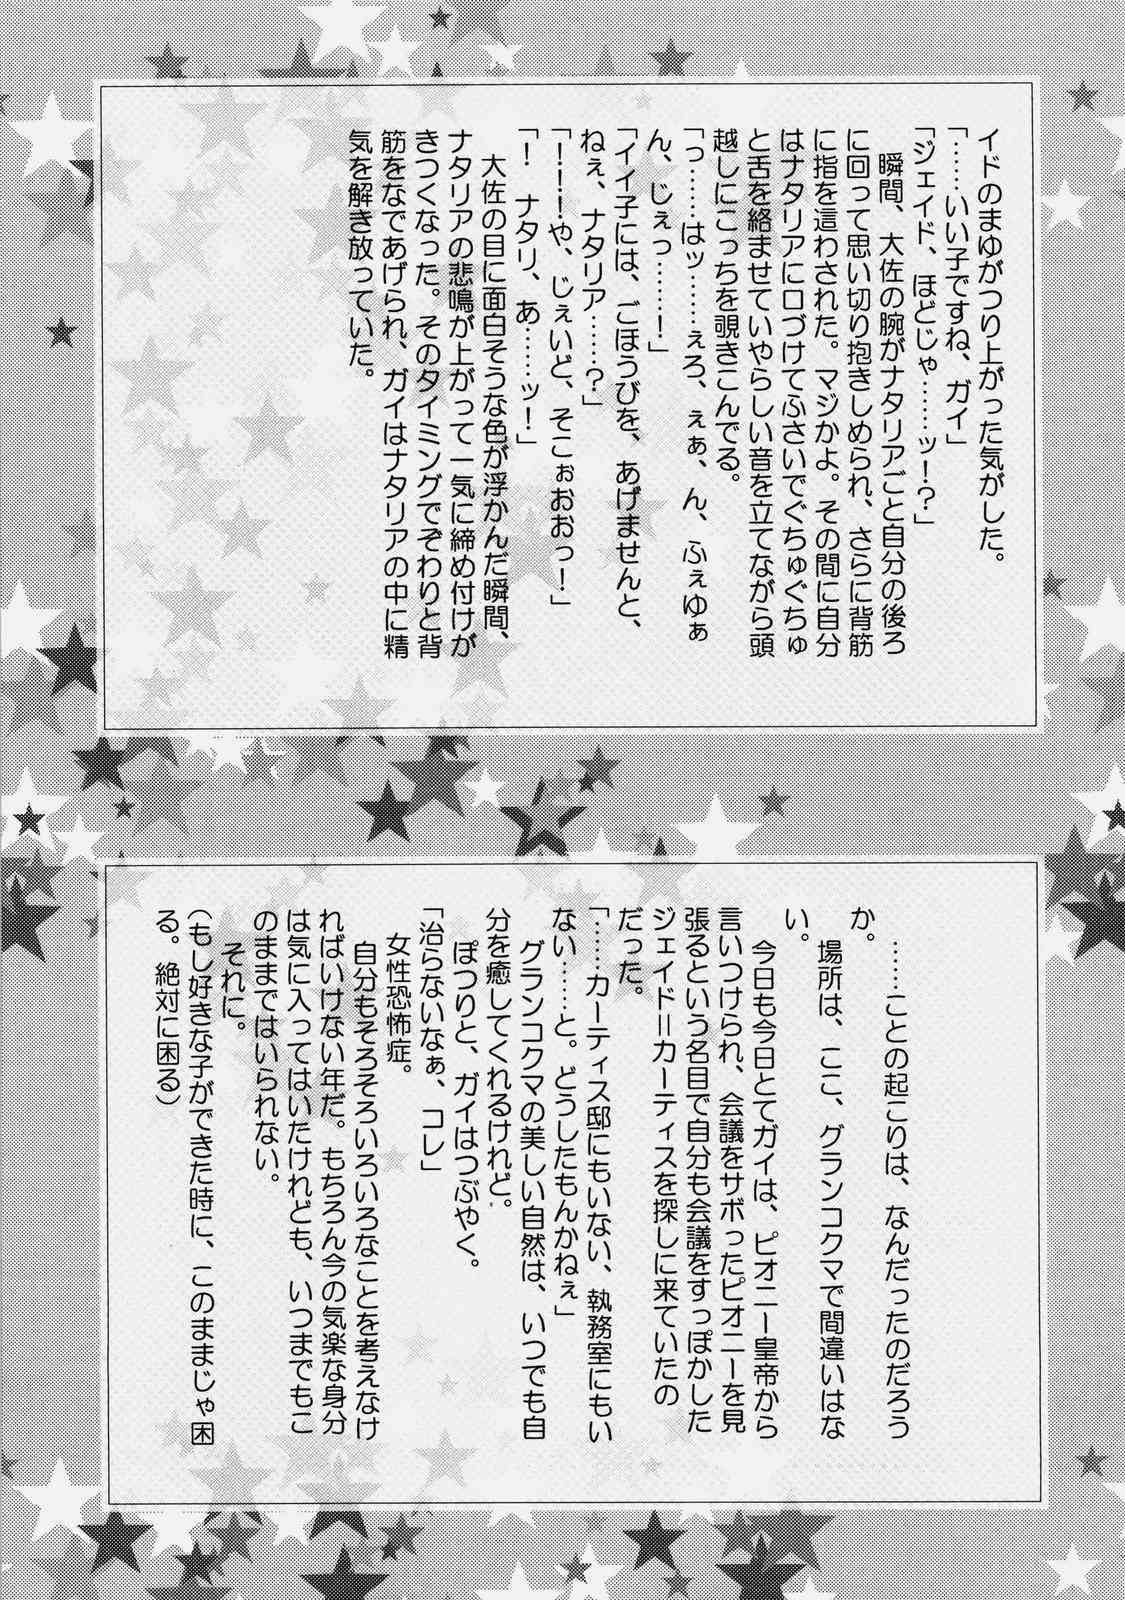 イドのまゆがつり上がった気がした。
「……いい子ですね、ガイ」
「ジェイド、ほどじゃ……ッ！？」
　瞬間、大佐の腕がナタリアごと自分の後ろ
に回って思い切り抱きしめられ、さらに背筋
に指を這わされた。マジかよ。その間に自分
はナタリアに口づけてふさいでぐちゅぐちゅ
と舌を絡ませていやらしい音を立てながら頭
越しにこっちを覗きこんでる。
「っ……はッ……ぇろ、ぇぁ、ん、ふぇゆぁ
ん、じぇっ……！」
「イイ子には、ごほうびを、あげませんと、
ねぇ、ナタリア……？」
「！！！や、じぇいど、そこぉおおっ！」
「！　ナタリ、あ……ッ！」
　大佐の目に面白そうな色が浮かんだ瞬間、
ナタリアの悲鳴が上がって一気に締め付けが
きつくなった。そのタイミングでぞわりと背
筋をなであげられ、ガイはナタリアの中に精
気を解き放っていた。
　……ことの起こりは、なんだったのだろう
か。
　場所は、ここ、グランコクマで間違いはな
い。
　今日も今日とてガイは、ピオニー皇帝から
言いつけられ、会議をサボったピオニーを見
張るという名目で自分も会議をすっぽかした
ジェイド＝カーティスを探しに来ていたの
だった。
「……カーティス邸にもいない、執務室にもい
ない……と。どうしたもんかねぇ」
　グランコクマの美しい自然は、いつでも自
分を癒してくれるけれど。
　ぽつりと、ガイはつぶやく。
「治らないなぁ、コレ」
　女性恐怖症。
　自分もそろそろいろいろなことを考えなけ
ればいけない年だ。もちろん今の気楽な身分
は気に入ってはいたけれども、いつまでもこ
のままではいられない。
　それに。
（もし好きな子ができた時に、このままじゃ困
る。絶対に困る）